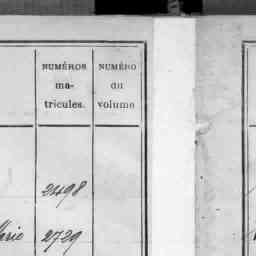 NUMÉROS
ma-
tricules.
NUMÉRO
du
volume
2498
2729